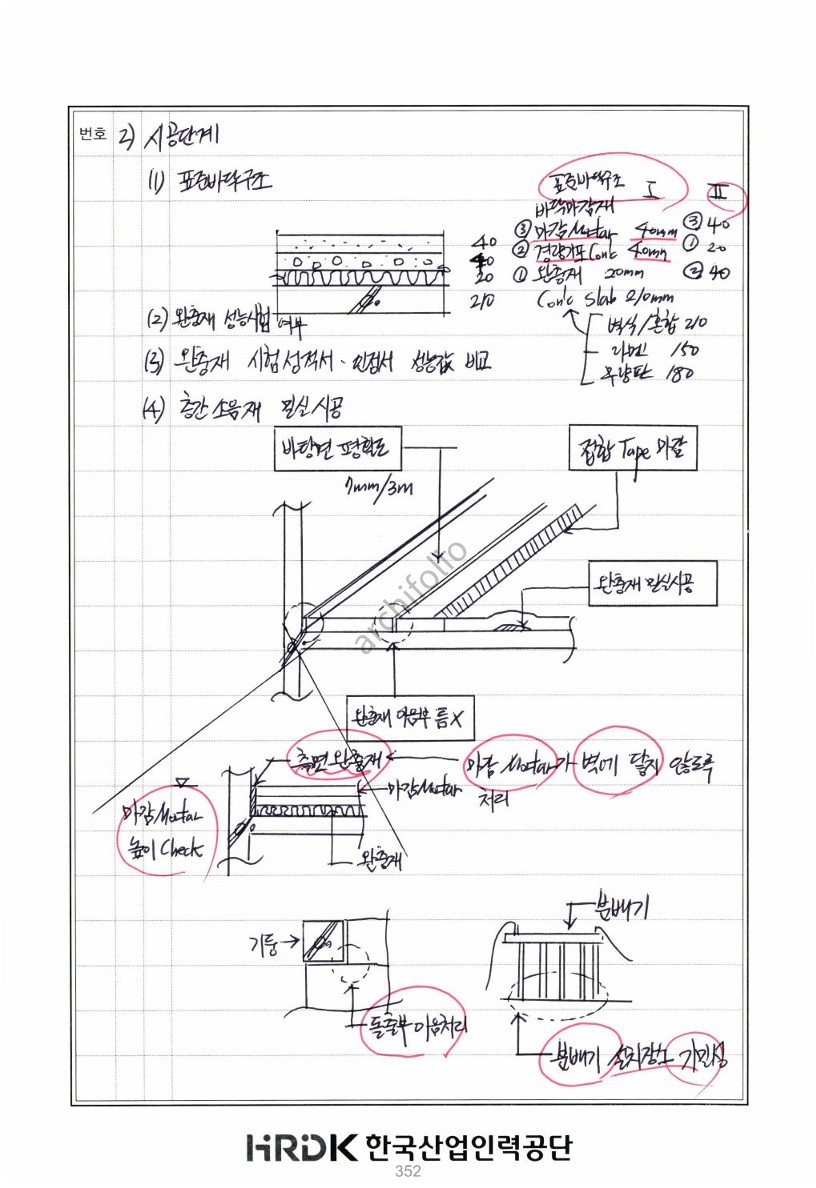 번호 2) 시공단계
(1) 표준바닥구조
표준바닥구조 Ⅰ Ⅱ
바닥마감재
③ 마감 Mortar 40mm ③ 40
② 경량기포 Conc 40mm ① 20
① 완충재 20mm ② 40
Con'c Slab 210mm
40
40
20
210
벽식/혼합 210
라멘 150
무량판 180
(2) 완충재 성능시험 여부
(3) 완충재 시험성적서·인정서 성능값 비교
(4) 층간소음재 밀실시공
바탕면 평활도
7mm/3m
접합 Tape 마감
완충재 밀실시공
완충재 이음부 틈 X
측면 완충재
마감 Mortar가 벽에 닿지 않도록
처리
마감 Mortar
마감 Mortar
높이 Check
완충재
기둥
돌출부 이음처리
분배기
분배기 설치장소 기밀성
archifolio
HRDK 한국산업인력공단
352